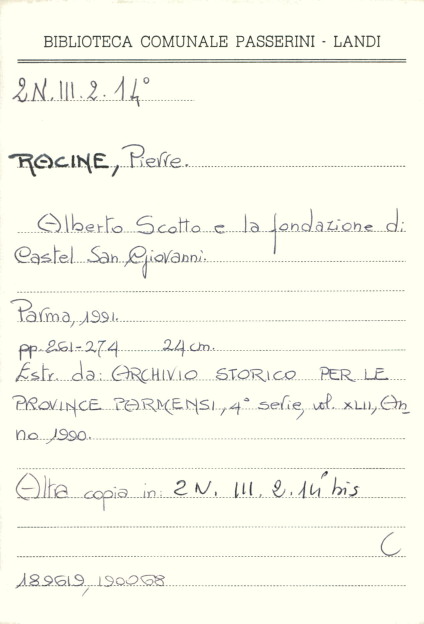 BIBLIOTECA COMUNALE PASSERINI - LANDI
2N.III.2.14°
RACINE, Pierre.
Alberto Scotto e la fondazione di
Castel San Giovanni.
Parma, 1991.
pp. 261-274 24 cm.
Estr. da: ARCHIVIO STORICO PER LE
PROVINCE PARMENSI, 4° serie, vol. XLII, An
no 1990.
Altra copia in: 2N. III. 2. 14° bis
C
189619, 190068